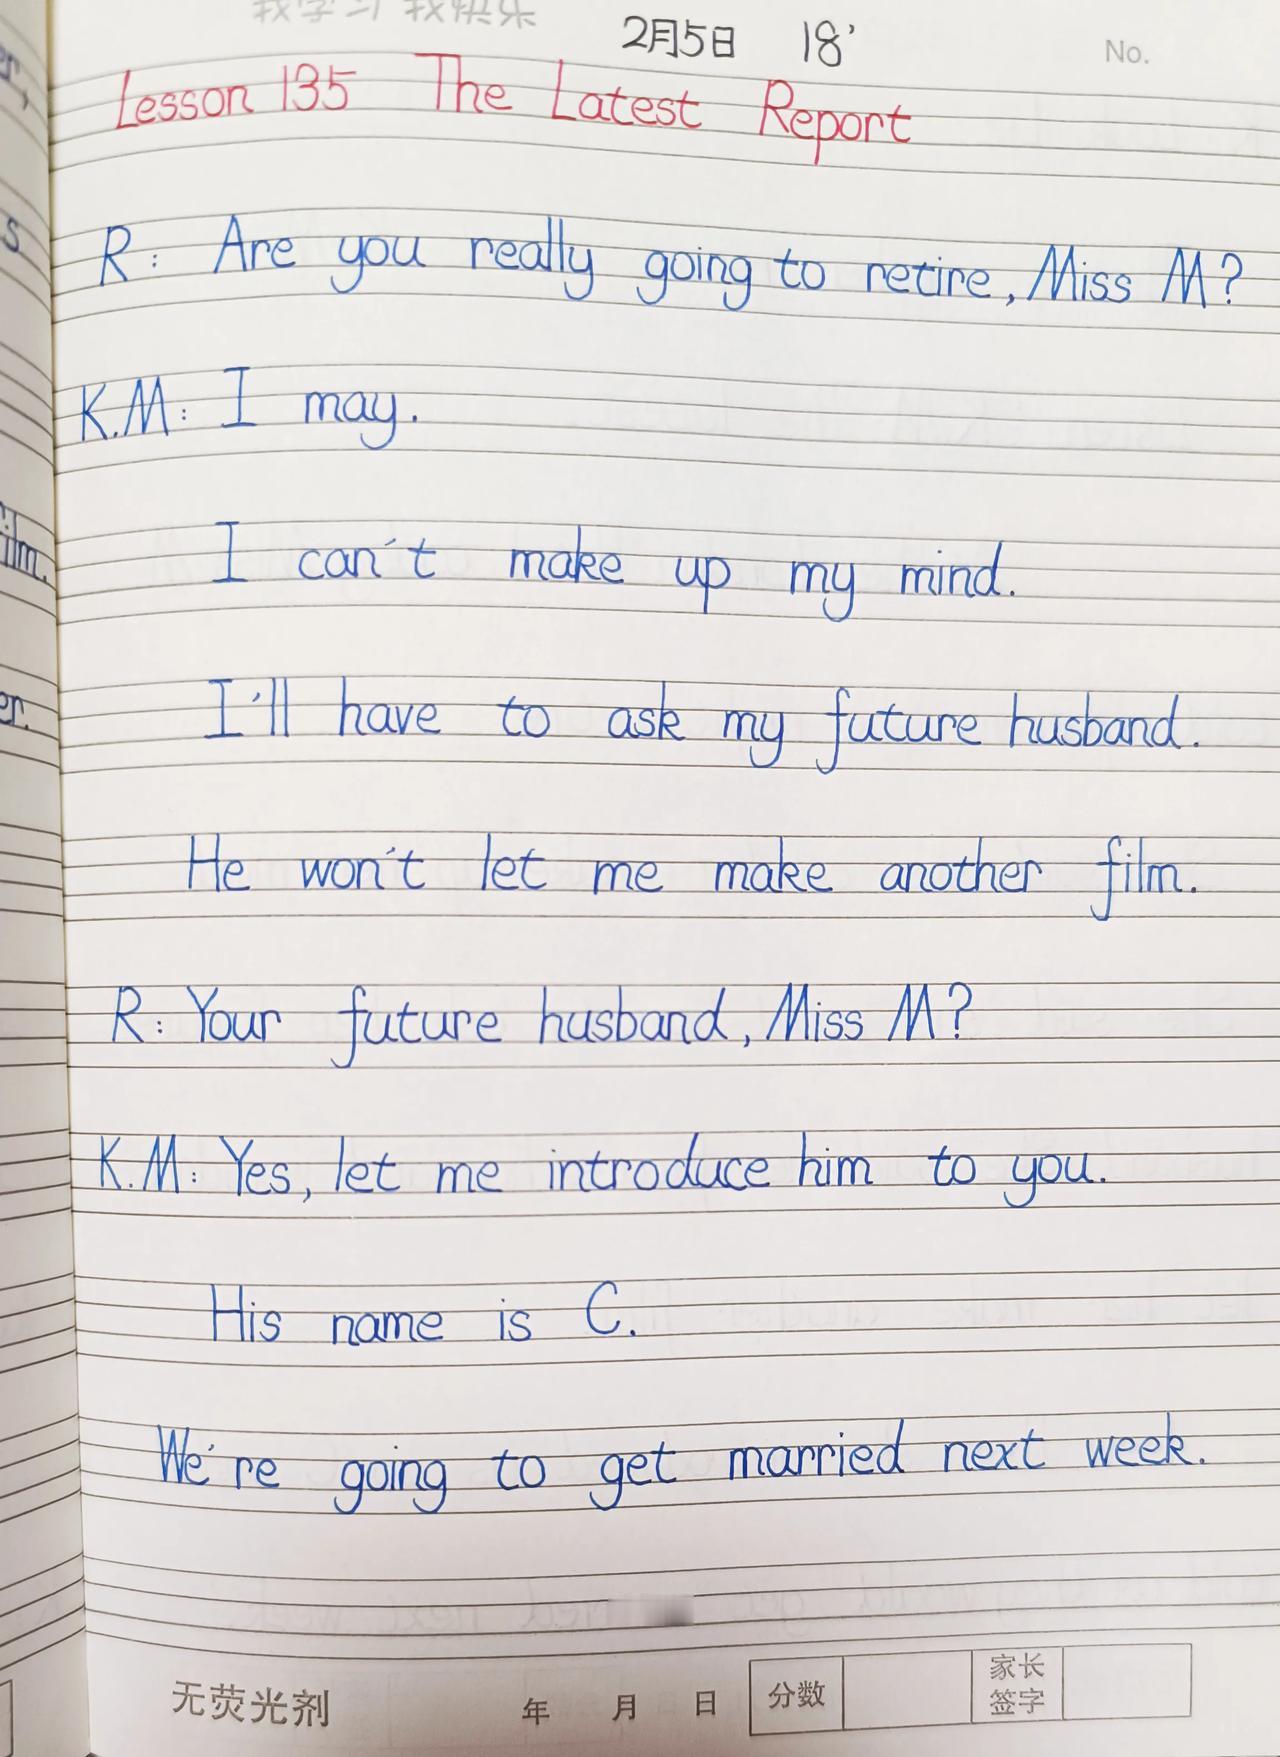 我学习 我快乐
2月5日 18'
No.
Lesson 135 The Latest Report
R: Are you really going to retire, Miss M?
K.M: I may.
I can't make up my mind.
I'll have to ask my future husband.
He won't let me make another film.
R: Your future husband, Miss M?
K.M: Yes, let me introduce him to you.
His name is C.
We're going to get married next week.
无荧光剂 年 月 日 分数 家长签字